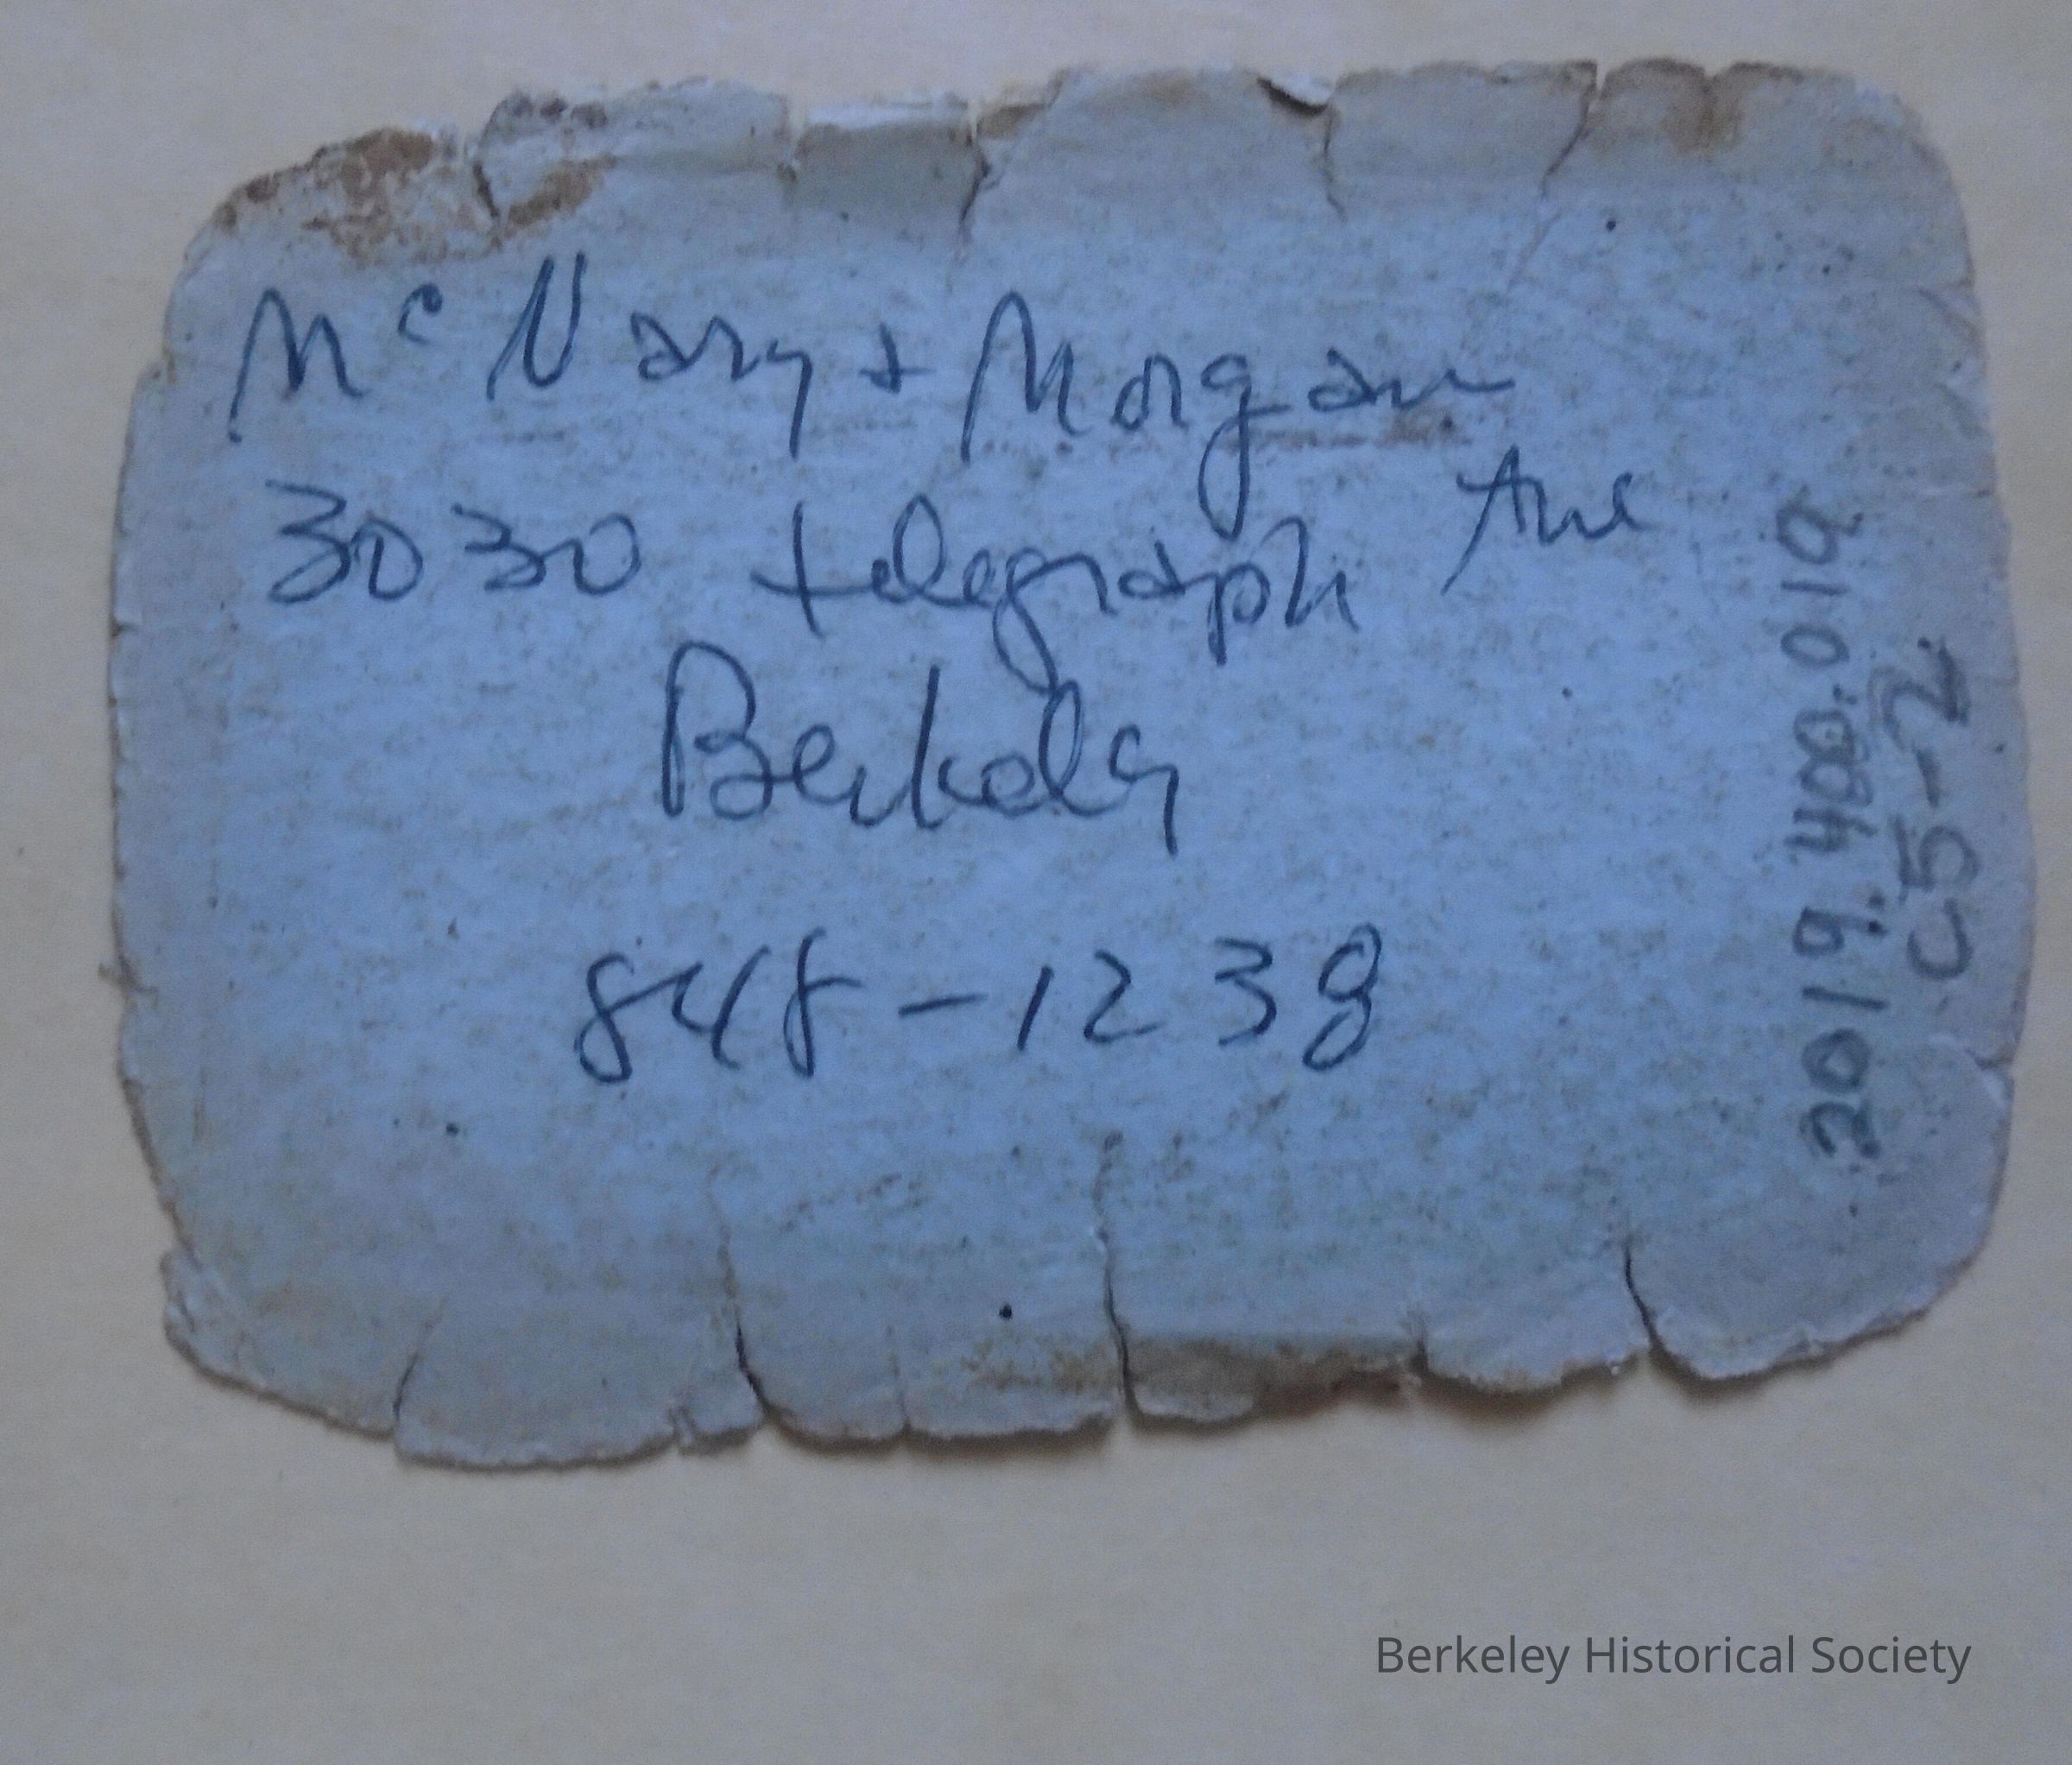 McNary + Morgan
3030 telegraph Ave
Berkeley
848-1238
2019.400.019
C5-2
Berkeley Historical Society